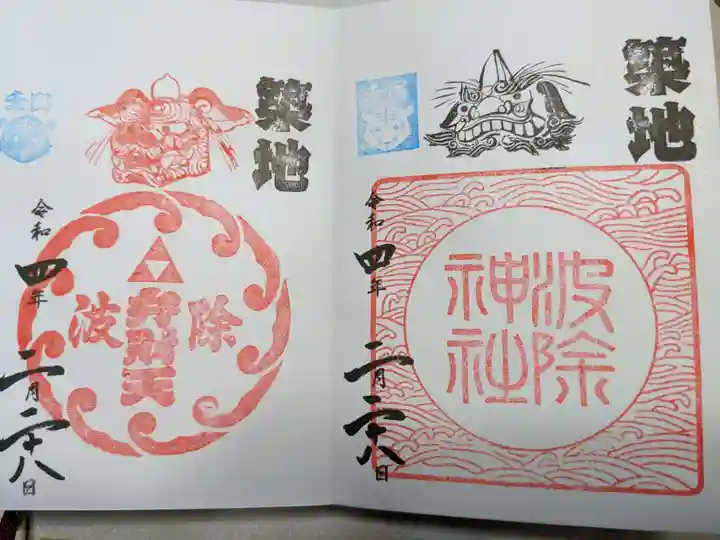 築地
波除
神社
令和四年二月二十八日
築地
波除
弁財天
令和四年二月二十八日